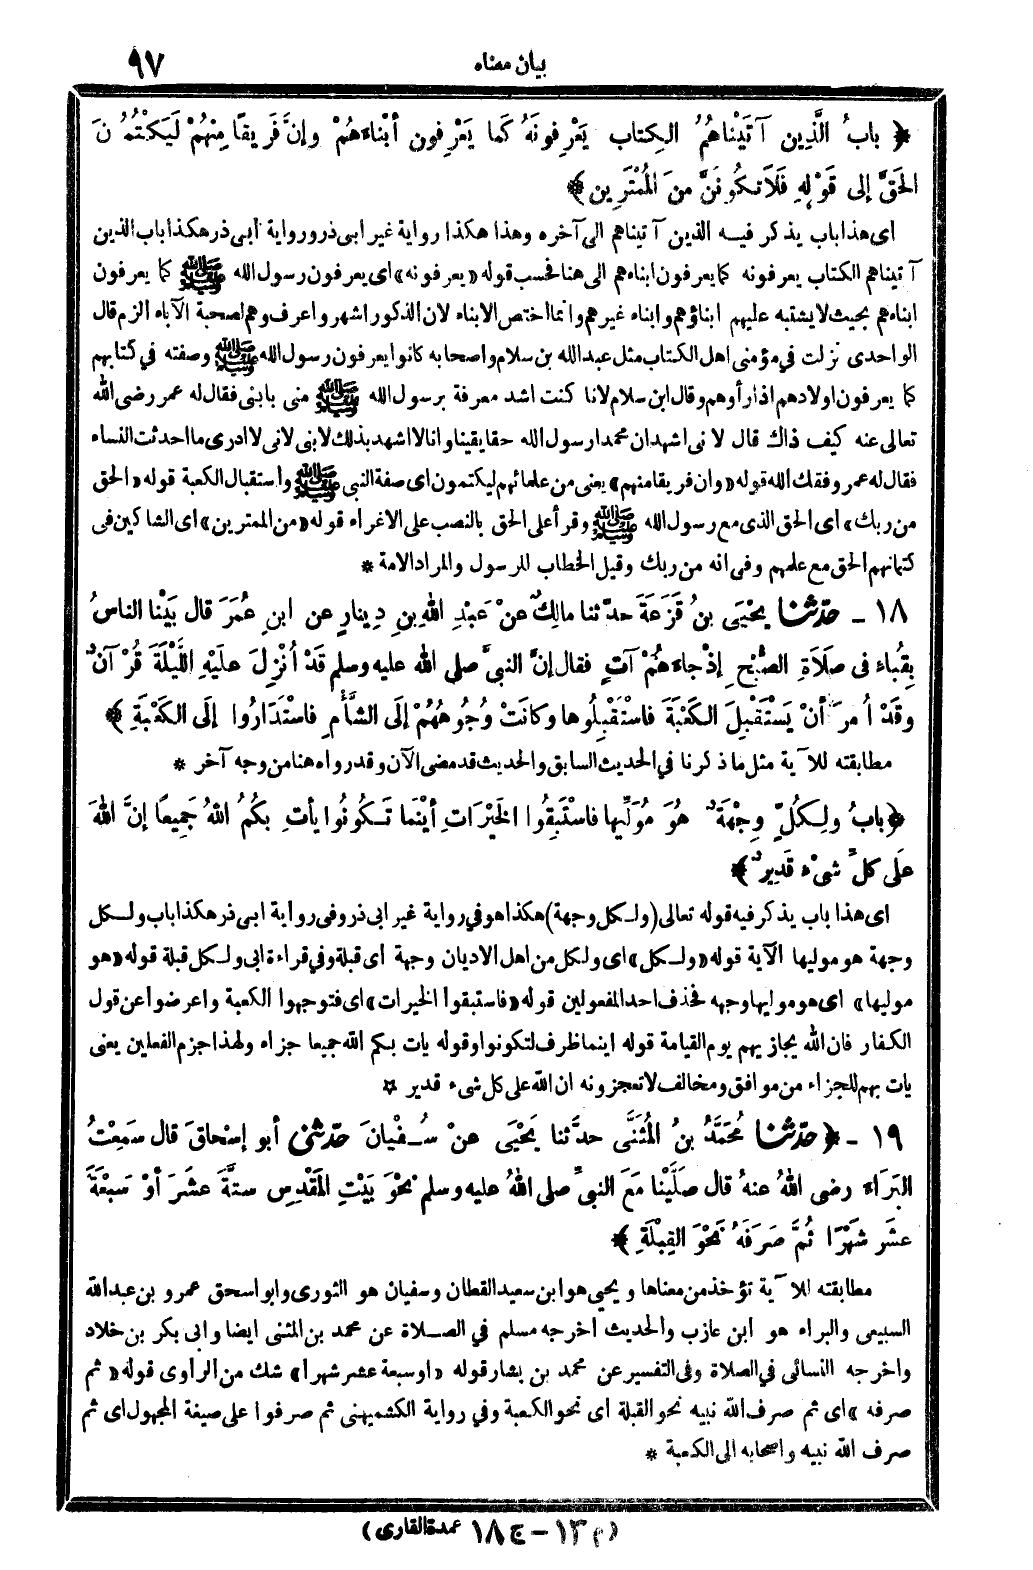 بيان معناه
٩٧
﴿ بابُ الَّذِينَ آتَيْنَاهُمُ الكِتابَ يَعْرِفونَهُ كَما يَعْرِفونَ أبْناءَهُمْ وإنَّ فَرِيقًا مِنْهُمْ لَيَكْتُمُونَ
الحَقَّ إلى قَوْلِهِ فَلَا تَكُونَنَّ مِنَ المُمْتَرِينَ ﴾
اى هذا باب يذكر فيه الذين آتيناهم الى آخره وهذا هكذا رواية غير ابى ذر ورواية ابى ذر هكذا باب الذين
آتيناهم الكتاب يعرفونه كما يعرفون ابناءهم الى هنا فحسب قوله «يعرفونه» اى يعرفون رسول الله ﷺ كما يعرفون
ابناءهم بحيث لا يشتبه عليهم ابناؤهم وابناء غيرهم وانما اختص الابناء لان الذكور اشهر واعرف وهم لصحبة الآباء الزم قال
الواحدى نزلت في مؤمنى اهل الكتاب مثل عبدالله بن سلام واصحابه كانوا يعرفون رسول الله ﷺ وصفته في كتابهم
كما يعرفون اولادهم اذا رأوهم وقال ابن سلام لانا كنت اشد معرفة برسول الله ﷺ منى بابنى فقال له عمر رضى الله
تعالى عنه كيف ذاك قال لانى اشهد ان محمدا رسول الله حقا يقينا وانا لا اشهد بذلك لابنى لانى لا ادرى ما احدثت النساء
فقال له عمر وفقك الله قوله «وان فريقا منهم» يعنى من علمائهم ليكتمون اى صفة النبى ﷺ واستقبال الكعبة قوله «الحق
من ربك» اى الحق الذى مع رسول الله ﷺ وقرأ على الحق بالنصب على الاغراء قوله «من الممترين» اى الشاكين في
كتمانهم الحق مع علمهم وفى انه من ربك وقيل الخطاب للرسول والمراد الامة *
١٨ - حدّثنا يَحْيَى بنُ قَزَعَةَ حدّثنا مالِكٌ عنْ عَبْدِ اللهِ بنِ دِينارٍ عنِ ابنِ عُمَرَ قال بَيْنا الناسُ
بِقُباءَ في صلَاةِ الصُّبْحِ إذْ جاءَهُمْ آتٍ فقال إنَّ النبىَّ صلى اللهُ عليه وسلم قَدْ أُنْزِلَ علَيْهِ اللَّيْلَةَ قُرْآنٌ
وقَدْ أُمِرَ أنْ يَسْتَقْبِلَ الكَعْبَةَ فاسْتَقْبِلُوها وكانَتْ وُجُوهُهُمْ إلَى الشَّأْمِ فاسْتَدَارُوا إلَى الكَعْبَةِ ﴾
مطابقته للآية مثل ما ذكرنا في الحديث السابق والحديث قد مضى الآن وقد رواه هنا من وجه آخر *
﴿ بابُ ولِكُلٍّ وِجْهَةٌ هُوَ مُوَلِّيها فاسْتَبِقُوا الخَيْرَاتِ أيْنَما تَكُونُوا يأتِ بِكُمُ اللهُ جَمِيعًا إنَّ اللهَ
عَلَى كلِّ شىْءٍ قَدِيرٌ ﴾
اى هذا باب يذكر فيه قوله تعالى (ولكل وجهة) هكذا هو في رواية غير ابى ذر وفى رواية ابى ذر هكذا باب ولكل
وجهة هو موليها الآية قوله «ولكل» اى ولكل من اهل الاديان وجهة اى قبلة وفي قراءة ابى ولكل قبلة قوله «هو
موليها» اى هو موليها وجهه فحذف احد المفعولين قوله «فاستبقوا الخيرات» اى فتوجهوا الكعبة واعرضوا عن قول
الكفار فان الله يجازيهم يوم القيامة قوله اينما ظرف لتكونوا وقوله يات بكم الله جميعا جزاء ولهذا جزم الفعلين يعنى
يات بهم للجزاء من موافق ومخالف لا تعجزونه ان الله على كل شىء قدير *
١٩ - ﴿ حدّثنا مُحَمَّدُ بنُ المُثَنَّى حدَّثنا يَحْيَى عنْ سُفْيانَ حدّثنى أبو إسْحاقَ قال سَمِعْتُ
البَرَاءَ رضى اللهُ عنهُ قال صَلَّيْنا مَعَ النبىِّ صلى اللهُ عليه وسلم نَحْوَ بَيْتِ المَقْدِسِ ستَّةَ عشَرَ أوْ سَبْعَةَ
عشَر شَهْرًا ثُمَّ صَرَفَهُ نَحْوَ القِبْلَةِ ﴾
مطابقته للآية تؤخذ من معناها ويحيى هو ابن سعيد القطان وسفيان هو الثورى وابو اسحق عمرو بن عبدالله
السبيعى والبراء هو ابن عازب والحديث اخرجه مسلم في الصلاة عن محمد بن المثنى ايضا وابى بكر بن خلاد
واخرجه النسائى في الصلاة وفى التفسير عن محمد بن بشار قوله «او سبعة عشر شهرا» شك من الراوى قوله «ثم
صرفه» اى ثم صرف الله نبيه نحو القبلة اى نحو الكعبة وفي رواية الكشميهنى ثم صرفوا على صيغة المجهول اى ثم
صرف الله نبيه واصحابه الى الكعبة *
(م ١٣ - ج ١٨ عمدة القارى)